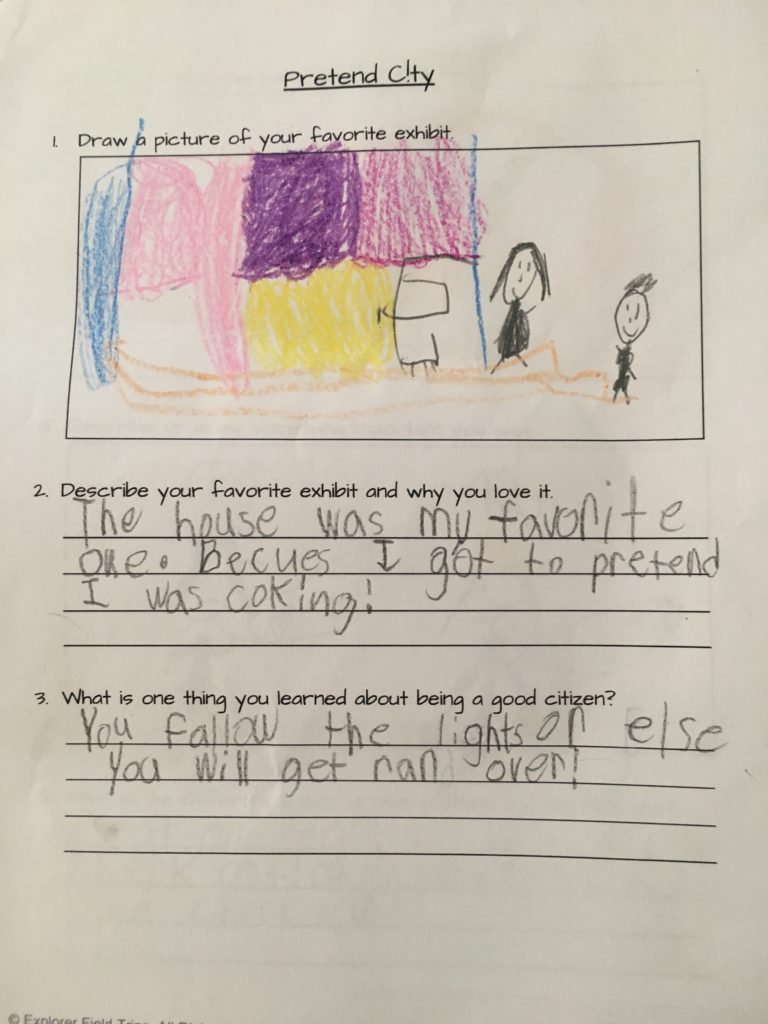 Pretend C!ty
1. Draw a picture of your favorite exhibit.
2. Describe your favorite exhibit and why you love it.
The house was my favorite
one. Becues I got to pretend
I was coking!
3. What is one thing you learned about being a good citizen?
You fallow the lights or else
you will get ran over!
© Explorer Field Trips. All